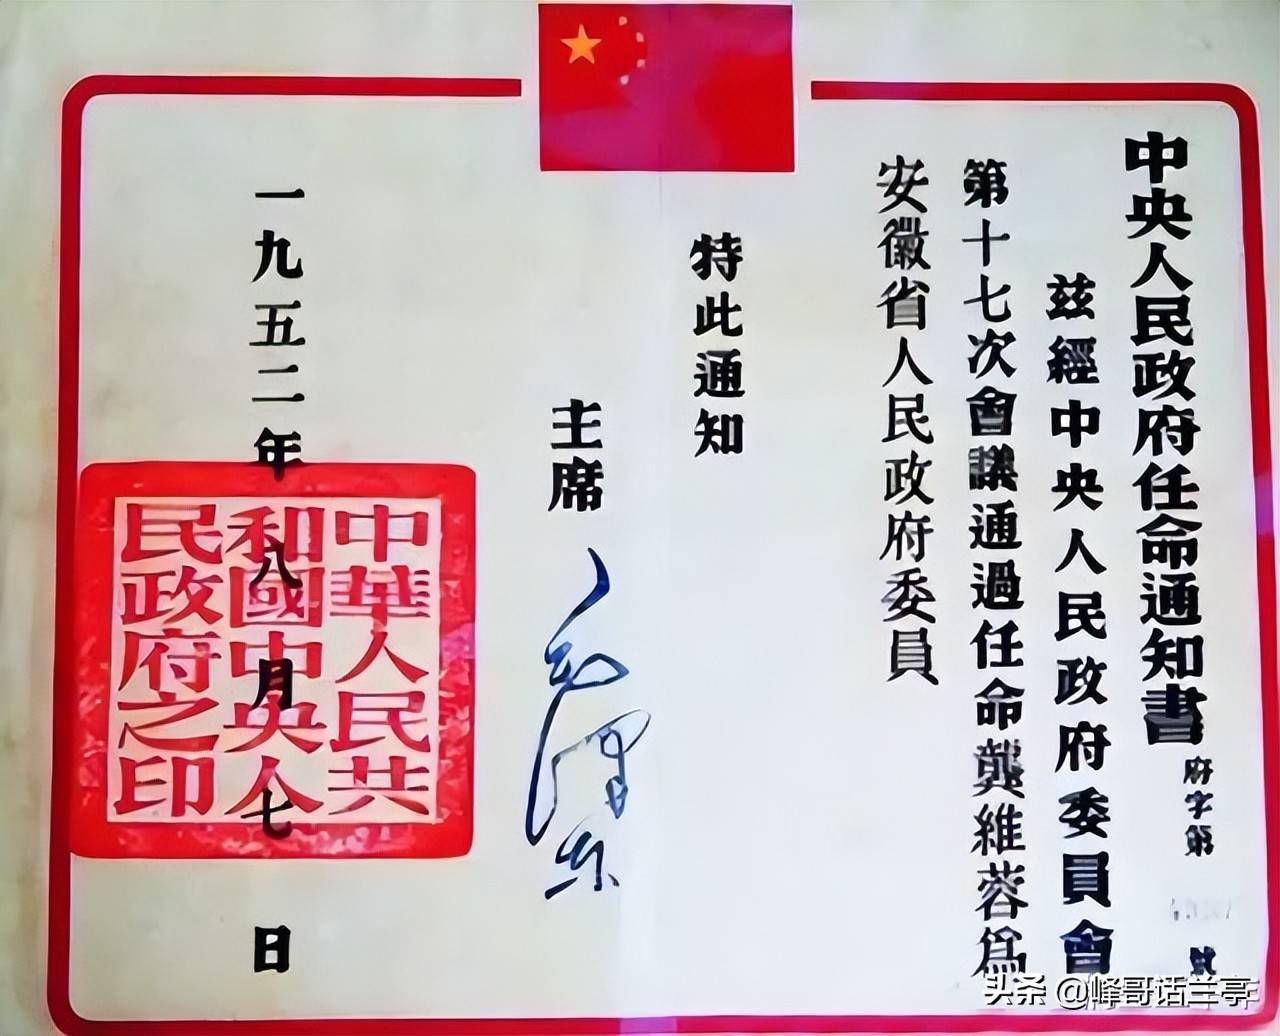 中央人民政府任命通知書
府字第 號
兹經中央人民政府委員會
第十七次會議通過任命龔維蓉爲
安徽省人民政府委員
特此通知
主席
毛澤東
一九五二年八月七日
中華人民共
和國中央人
民政府之印
头条 @峰哥话兰亭